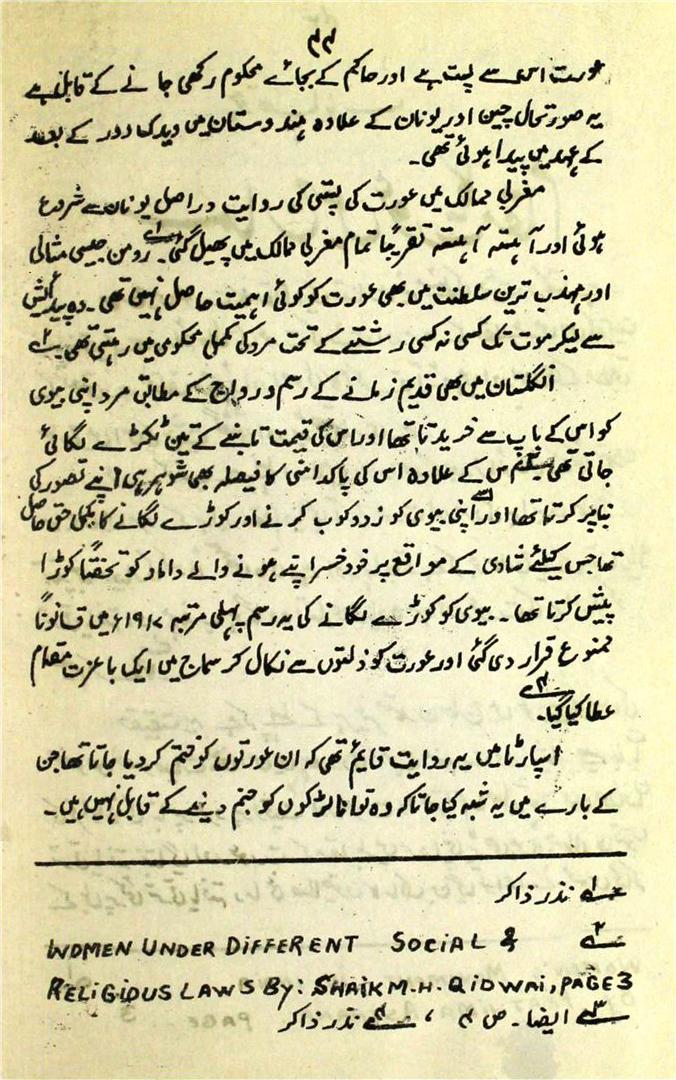 ۴۴
عورت اس سے پست ہے اور حاکم کے بجائے محکوم رکھی جانے کے قابل ہے
یہ صورتحال چین اور یونان کے علاوہ ہندوستان میں ویدک دور کے بعد
کے عہد میں پیدا ہوئی تھی۔
مغربی ممالک میں عورت کی پستی کی روایت دراصل یونان سے شروع
ہوئی اور آہستہ آہستہ تقریباً تمام مغربی ممالک میں پھیل گئی۔ ۱؎ رومن جیسی مثالی
اور مہذب ترین سلطنت میں بھی عورت کو کوئی اہمیت حاصل نہیں تھی۔ وہ پیدائش
سے لیکر موت تک کسی نہ کسی رشتے کے تحت مرد کی مکمل محکومی میں رہتی تھی۔ ۲؎
انگلستان میں بھی قدیم زمانے کے رسم و رواج کے مطابق مرد اپنی بیوی
کو اس کے باپ سے خریدتا تھا اور اس کی قیمت تانبے کے تین ٹکڑے لگائی
جاتی تھی ۳؎ اس کے علاوہ اس کی پاکدامنی کا فیصلہ بھی شوہر ہی اپنے تصور کی
بنا پر کرتا تھا اور اسے اپنی بیوی کو زد و کوب کرنے اور کوڑے لگانے کا مکمل حق حاصل
تھا جس کیلئے شادی کے مواقع پر خود خسر اپنے ہونے والے داماد کو تحفتاً کوڑا
پیش کرتا تھا۔ بیوی کو کوڑے لگانے کی یہ رسم پہلی مرتبہ ۱۹۱۷ء میں قانوناً
ممنوع قرار دی گئی اور عورت کو ذلتوں سے نکال کر سماج میں ایک باعزت مقام
عطا کیا گیا۔ ۴؎
اسپارٹا میں یہ روایت قایم تھی کہ ان عورتوں کو ختم کر دیا جاتا تھا جن
کے بارے میں یہ شبہ کیا جاتا کہ وہ توانا لڑکوں کو جنم دینے کے قابل نہیں ہیں۔
۱؎ نذر ذاکر
۲؎ WOMEN UNDER DIFFERENT SOCIAL &
RELIGIOUS LAWS By: SHAIK M.H. QIDWAI, PAGE 3
۳؎ ایضا۔ ص ۴ ، ۴؎ نذر ذاکر